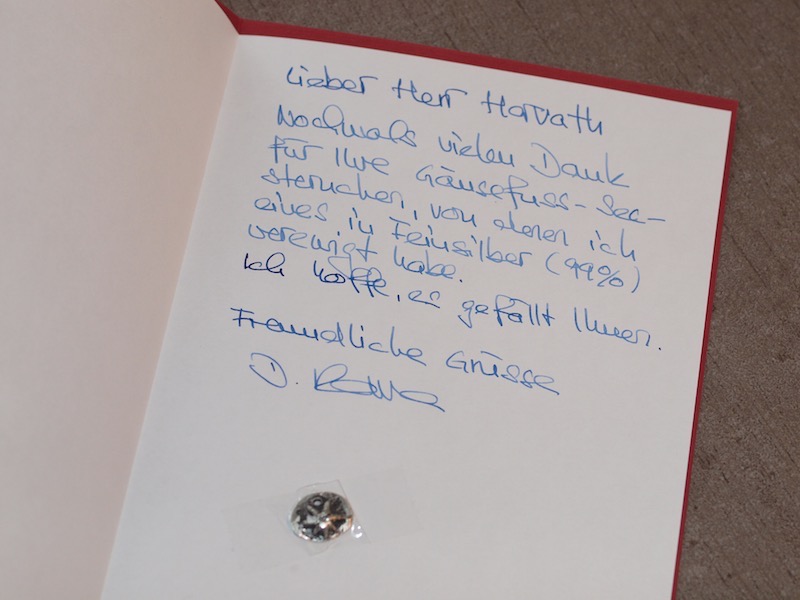 Lieber Herr Horvath
Nochmals vielen Dank
für Ihre Gänsefuss-See-
sternchen, von denen ich
eines in Feinsilber (99%)
verewigt habe.
Ich hoffe, es gefällt Ihnen.
Freundliche Grüsse
D.